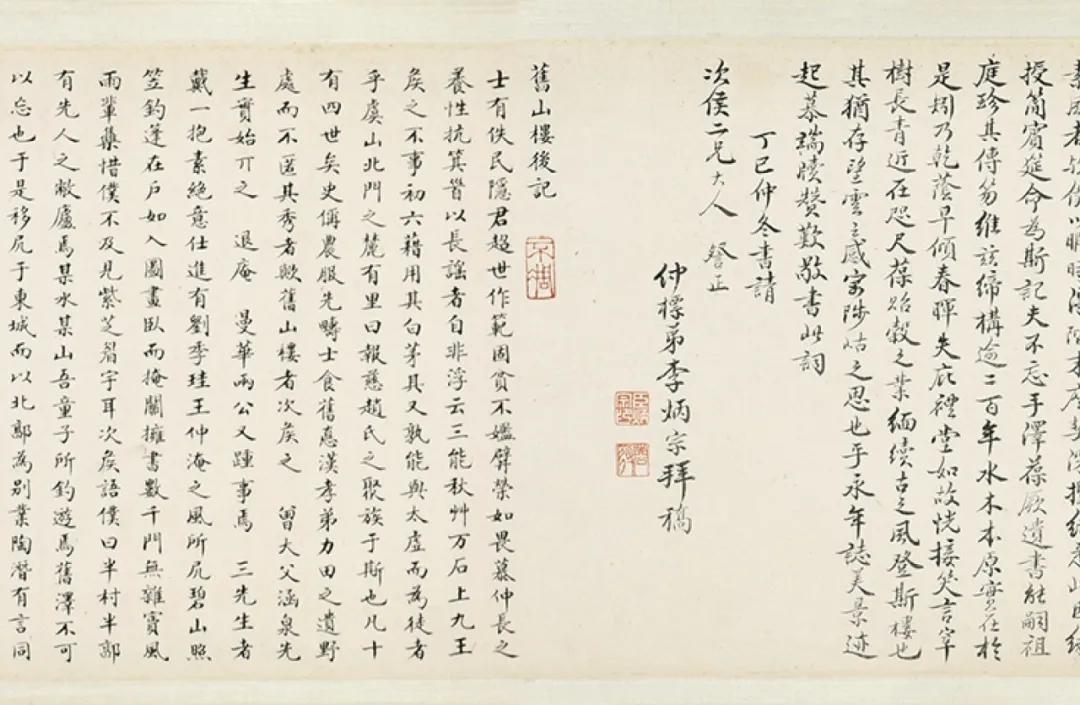 授簡賓筵命為斯記夫不忘手澤葆厥遺書能嗣祖
庭珍其傳笏維該締構逾二百年水木本原實在於
是矧乃乾蔭早傾春暉失庇禮堂如故恍接笑言宰
樹長青近在咫尺葆貽穀之業緬續古之風登斯樓也
其猶存望雲之感寄陟岵之思也乎永年誌美景述
起慕端牘贊歎敬書此詞
丁巳仲冬書請
次侯二兄大人 正
仲標弟李炳宗拜稿
舊山樓後記
士有佚民隱君超世作範固貧不尷辟榮如畏慕仲長之
養性抗箕晉以長謠者自非浮云三能秋艸万石上九王
矦之不事初六藉用其白茅其又孰能與太虛而為徒者
乎虞山北門之麓有里曰報慈趙氏之聚族于斯也凡十
有四世矣史偁農服先疇士食舊悳漢孝弟力田之遺野
處而不匿其秀者歟舊山樓者次矦之 曾大父涵泉先
生實始丌之 退庵 曼華兩公又踵事焉 三先生者
戴一抱素絕意仕進有劉季珪王仲淹之風所凥碧山照
笠釣蓬在戶如入圖畫臥而掩關擁書數千門無雜賓風
雨輩集惜僕不及見紫芝眉宇耳次矦語僕曰半村半郭
有先人之敝廬焉某水某山吾童子所釣遊焉舊澤不可
以忘也于是移凥于東城而以北郭為別業陶潛有言同